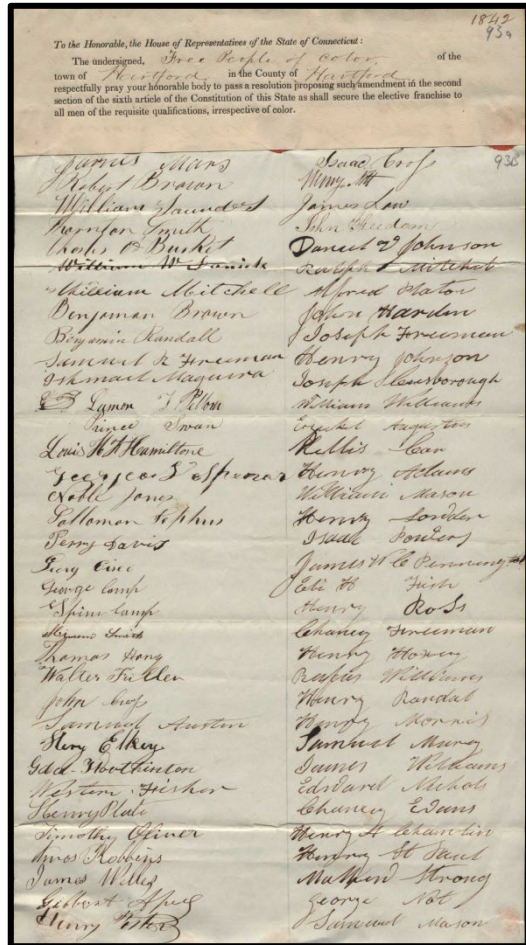 1842
93a
To the Honorable, the House of Representatives of the State of Connecticut:
The undersigned, Free People of Color of the
town of Hartford in the County of Hartford
respectfully pray your honorable body to pass a resolution proposing such amendment in the second
section of the sixth article of the Constitution of this State as shall secure the elective franchise to
all men of the requisite qualifications, irrespective of color.
93B
James Mars
Robert Brown
William Saunders
Smith
Busket
William W
William Mitchell
Benjaman Brown
Benjamin Randall
Samuel R Freeman
Ishmael
Lamon
Prince Swan
Louis H F Hamiltone
George Spencer
Noble Jones
Solloman
Perry Davis
George Camp
Camp
Smith
Thomas
Walter Fuller
John Cross
Samuel Austin
Elkey
Western Fisher
Henry Plato
Timothy Oliver
Amos Robbins
James Willes
Henry Foster
Isaac Cross
Henry Nott
James Law
John Freedom
Daniel Johnson
Ralph Mitchel
Alfred Platon
John Hardin
Joseph Freeman
Henry Johnson
Joseph Scarsborough
William Williams
Augustus
Car
Henry Adams
William Mason
Henry
Isaac
James W C Pennington
Eli H Fish
Henry Ross
Chancy Freeman
Henry
Rufus Williams
Henry Randal
Henry Morris
Samuel Murey
James Williams
Edward Nichols
Chancy Edans
Henry A Chamlin
Henry St Paul
Strong
George Not
Samuel Mason